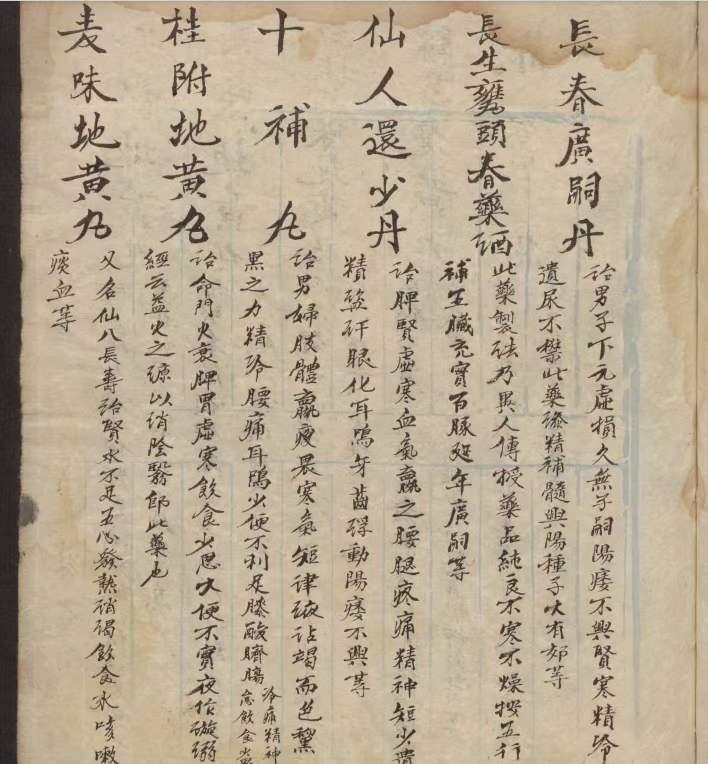 長春廣嗣丹
治男子下元虛損久無子嗣陽痿不興賢寒精冷
遺尿不禁此藥添精補髓興陽種子大有効等
長生甕頭春藥酒
此藥製法乃異人傳授藥品純良不寒不燥按五行
補五臟充實百脉延年廣嗣等
仙人還少丹
治脾賢虛寒血氣羸乏腰腿疼痛精神短少遺
精盜汗眼化耳鳴牙齒浮動陽痿不興等
十補丸
治男婦肢體羸瘦畏寒氣短律液沾竭面色黧
黑乏力精冷腰痛耳鳴少便不利足膝酸臍腸
冷痛精神
怠飲食少
桂附地黃丸
治命門火衰脾胃虛寒飲食少思大便不實夜倍漩溺
經云益火之源以消陰翳即此藥也
麦味地黃丸
又名仙八長壽治賢水不足五心發熱消渴飲食水咳嗽
痰血等